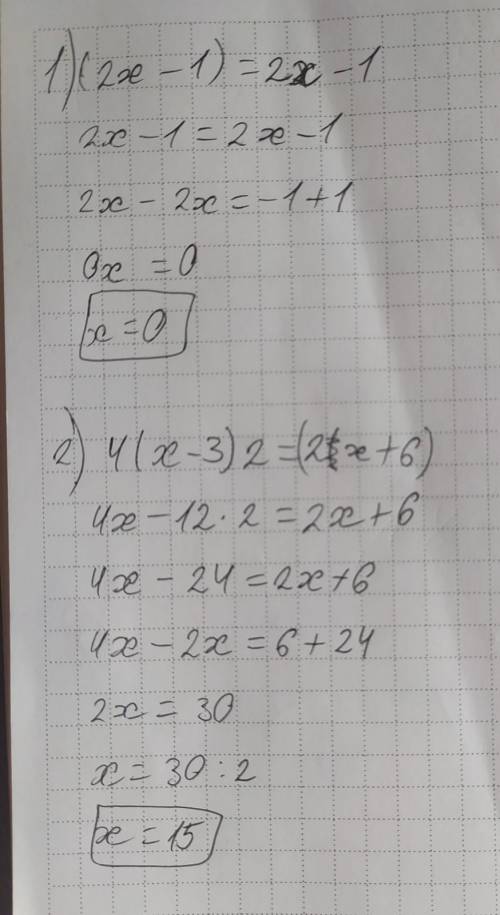 1) (2x - 1) = 2x - 1
2x - 1 = 2x - 1
2x - 2x = -1 + 1
0x = 0
x = 0
2) 4(x - 3) 2 = (2x + 6)
4x - 12 · 2 = 2x + 6
4x - 24 = 2x + 6
4x - 2x = 6 + 24
2x = 30
x = 30 : 2
x = 15